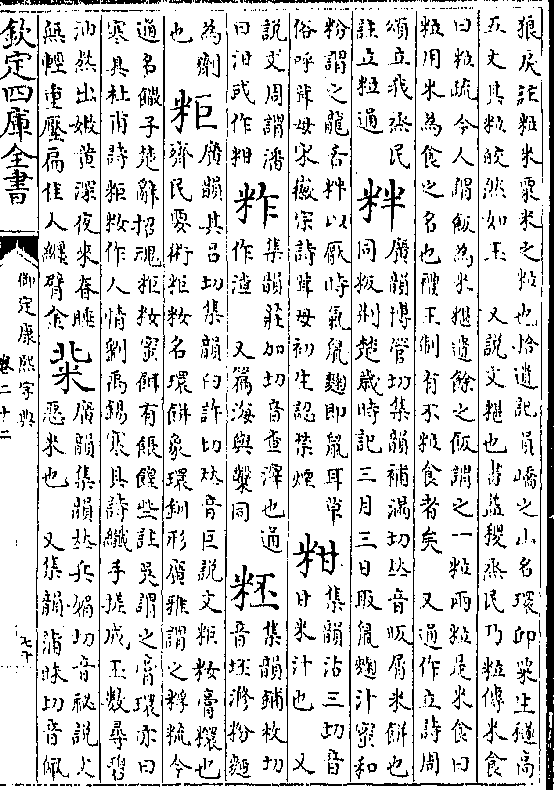 狼戾註粒米粟米之粒也拾遺記員嶠之山名環邱粟生穟高
五丈其粒皎然如玉 又說文糂也書益稷烝民乃粒傳米食
曰粒疏今人謂飯為米糂遺餘之飯謂之一粒兩粒是米食曰
粒用米為食之名也禮王制有不粒食者矣 又通作立詩周
頌立我烝民
註立粒通
䉽
廣韻博管切集韻補滿切𠀤音昄屑米餅也
同粄荆楚歲時記三月三日取鼠麴汁蜜和
粉謂之龍舌䉽以厭時氣鼠麴即鼠耳草
俗呼茸母宋徽宗詩茸母初生認禁煙
粓
集韻沽三切音
甘米汁也 又
說文周謂潘
曰泔或作粓
集韻莊加切音查滓也通
作渣 又篇海與糳同
集韻鋪枚切
音坯滫粉麵
為劑
也
粔
廣韻其呂切集韻臼許切𠀤音巨說文粔籹膏糫也
齊民要術粔籹名環餅象環釧形廣雅謂之粰䊩今
通名饊子楚辭招魂粔籹蜜餌有餦餭些註吳謂之膏環亦曰
寒具杜甫詩粔籹作人情劉禹錫寒具詩纖手搓成玉數尋碧
油煎出嫩黃深夜來春睡
無輕重壓扁佳人纏臂金
粊
廣韻集韻𠀤兵媚切音祕說文
惡米也 又集韻蒲昧切音佩
欽定四庫全書
御定康熙字典
卷二十二